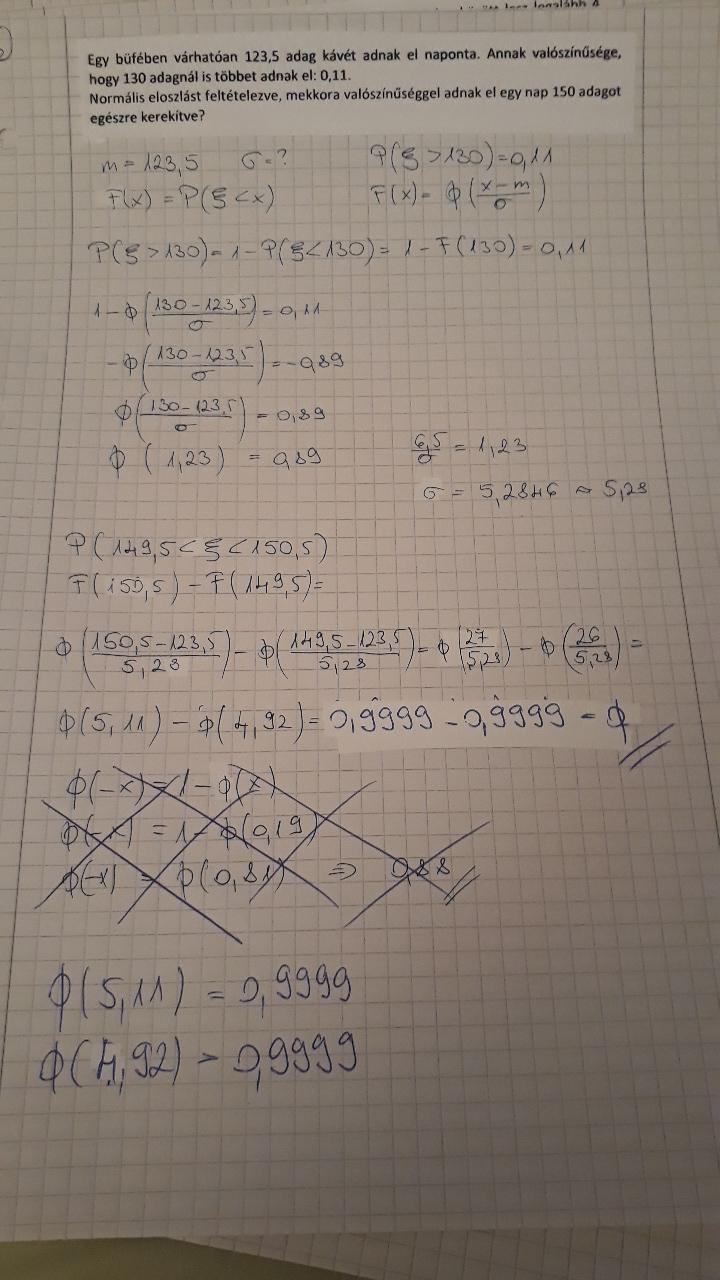 Egy büfében várhatóan 123,5 adag kávét adnak el naponta. Annak valószínűsége,
hogy 130 adagnál is többet adnak el: 0,11.
Normális eloszlást feltételezve, mekkora valószínűséggel adnak el egy nap 150 adagot
egészre kerekítve?
m = 123,5 σ = ? P(ξ > 130) = 0,11
F(x) = P(ξ < x) F(x) = ϕ((x-m)/σ)
P(ξ > 130) = 1 - P(ξ < 130) = 1 - F(130) = 0,11
1 - ϕ((130-123,5)/σ) = 0,11
-ϕ((130-123,5)/σ) = -0,89
ϕ((130-123,5)/σ) = 0,89
ϕ(1,23) = 0,89 6,5/σ = 1,23
σ = 5,2846 ≈ 5,28
P(149,5 < ξ < 150,5)
F(150,5) - F(149,5) =
ϕ((150,5-123,5)/5,28) - ϕ((149,5-123,5)/5,28) = ϕ(27/5,28) - ϕ(26/5,28) =
ϕ(5,11) - ϕ(4,92) = 0,9999 - 0,9999 = 0
ϕ(-x) = 1 - ϕ(x)
ϕ(-x) = 1 - ϕ(0,19)
ϕ(-x) = ϕ(0,81) ⇒ 0,88
ϕ(5,11) = 0,9999
ϕ(4,92) = 0,9999